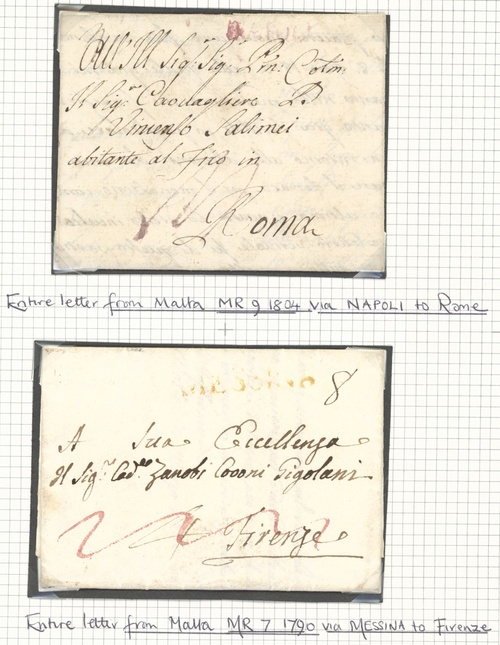 All'Ill Sigr Sigr Prn: Colmo
Il Sigr Cavagliere D.
Vincenso Salimei
abitante al Frio in
Roma
Entire letter from Malta MR 9 1804 via NAPOLI to Rome
8
A Sua Eccellenza
Il Sigr Zanobi Covoni Gigolani
Firenze
Entire letter from Malta MR 7 1790 via MESSINA to Firenze